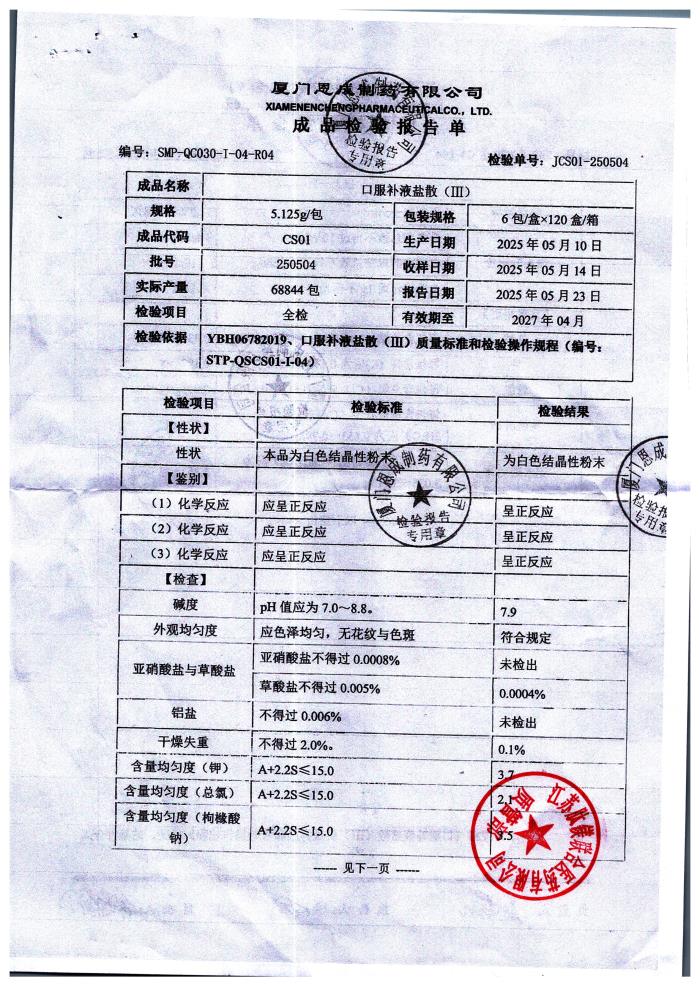 厦门恩成制药有限公司
XIAMENENCHENGPHARMACEUTICALCO., LTD.
成品检验报告单
编号：SMP-QC030-I-04-R04 检验单号：JCS01-250504
成品名称 口服补液盐散（III）
规格 5.125g/包 包装规格 6 包/盒×120 盒/箱
成品代码 CS01 生产日期 2025 年 05 月 10 日
批号 250504 收样日期 2025 年 05 月 14 日
实际产量 68844 包 报告日期 2025 年 05 月 23 日
检验项目 全检 有效期至 2027 年 04 月
检验依据 YBH06782019、口服补液盐散（III）质量标准和检验操作规程（编号：
STP-QSCS01-I-04）
检验项目 检验标准 检验结果
【性状】
性状 本品为白色结晶性粉末 为白色结晶性粉末
【鉴别】
（1）化学反应 应呈正反应 呈正反应
（2）化学反应 应呈正反应 呈正反应
（3）化学反应 应呈正反应 呈正反应
【检查】
碱度 pH 值应为 7.0～8.8。 7.9
外观均匀度 应色泽均匀，无花纹与色斑 符合规定
亚硝酸盐与草酸盐 亚硝酸盐不得过 0.0008% 未检出
草酸盐不得过 0.005% 0.0004%
铝盐 不得过 0.006% 未检出
干燥失重 不得过 2.0%。 0.1%
含量均匀度（钾） A+2.2S≤15.0 3.7
含量均匀度（总氯） A+2.2S≤15.0 2.1
含量均匀度（枸橼酸
钠） A+2.2S≤15.0 3.5
------ 见下一页 ------
厦门恩成制药有限公司
检验报告
专用章
厦门恩成制药有限公司
检验报告
专用章
厦门恩成
检验报
专用章